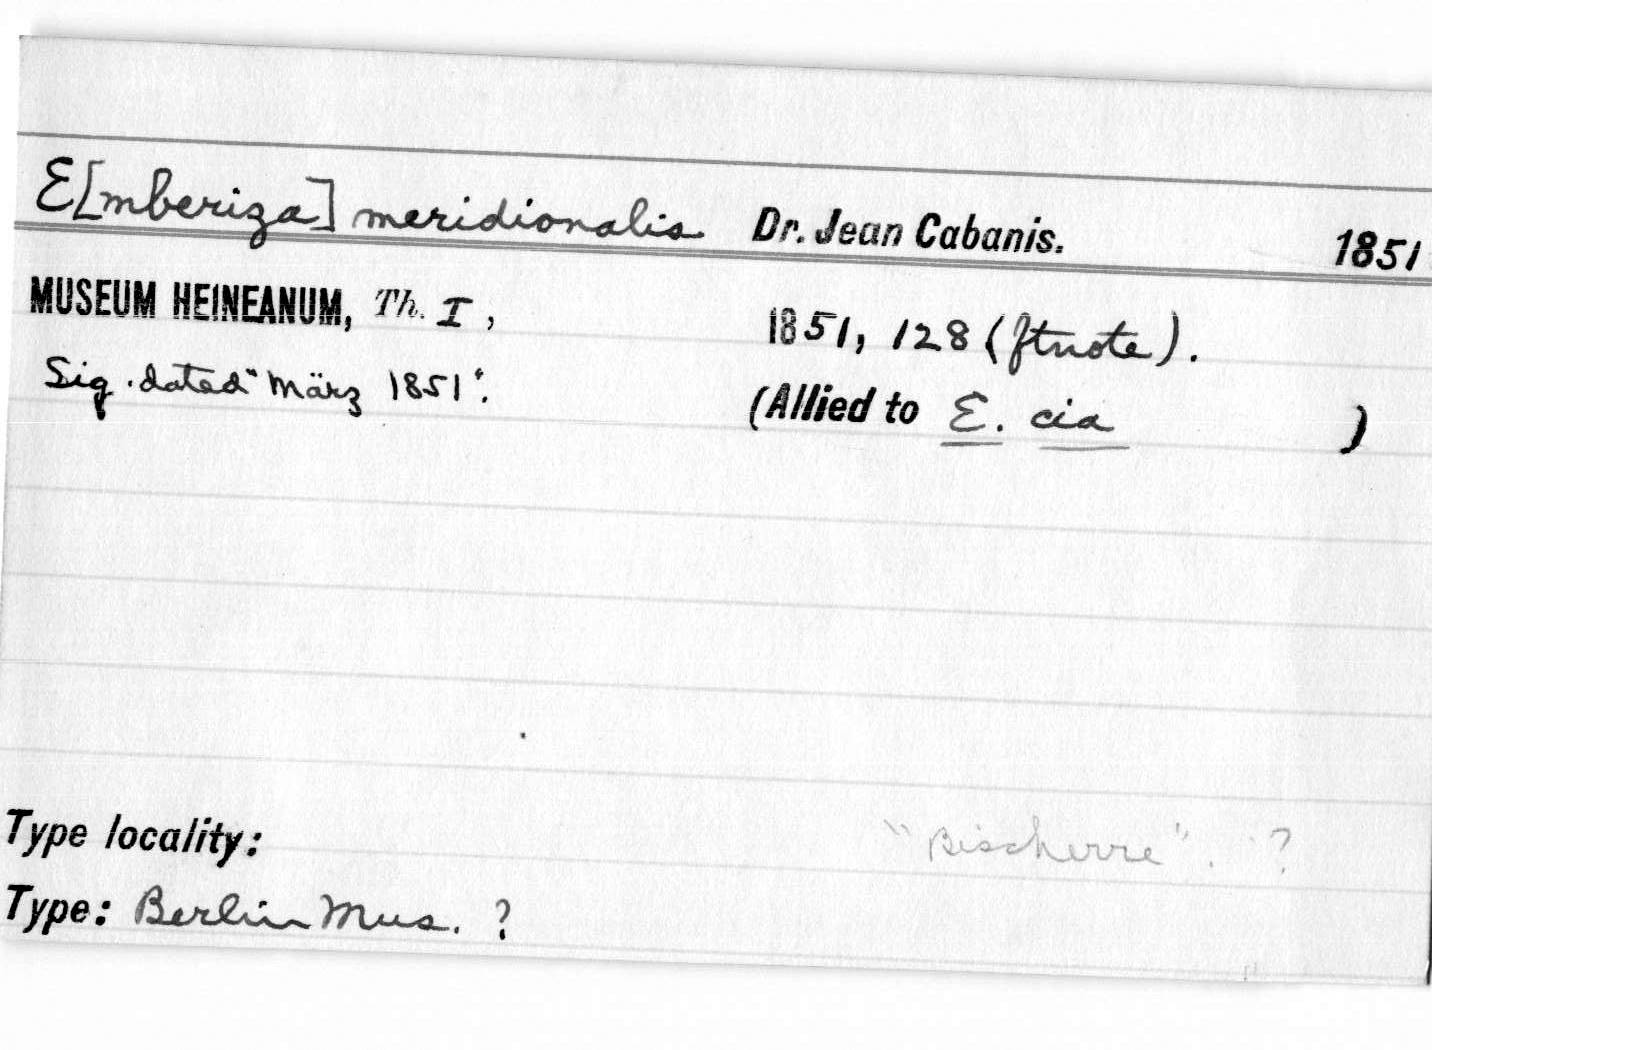 E[mberiza] meridionalis Dr. Jean Cabanis. 1851
MUSEUM HEINEANUM, Th. I, 1851, 128 (ftnote).
Sig. dated "März 1851". (Allied to E. cia )
Type locality: "Bischerre". ?
Type: Berlin Mus. ?